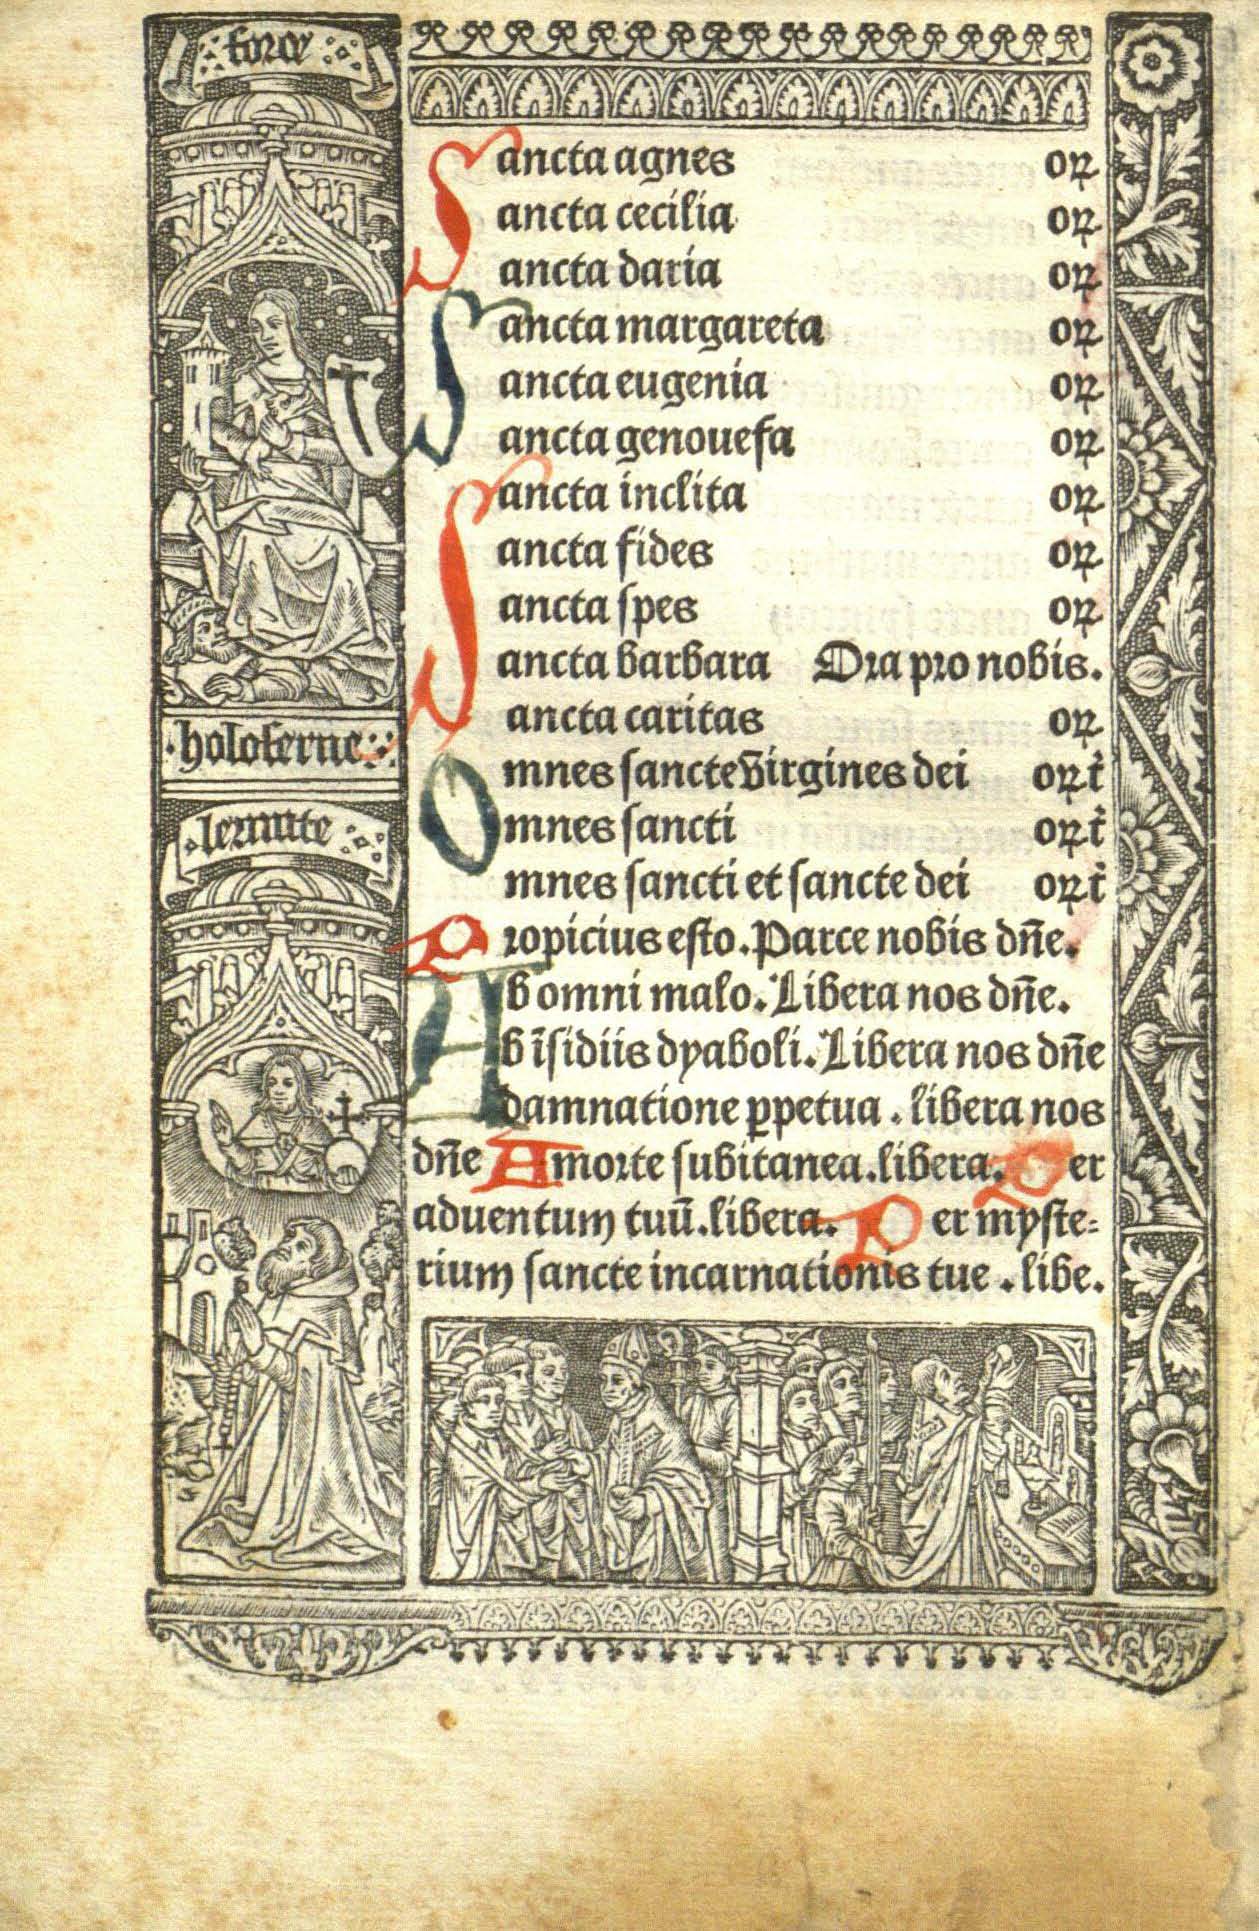 force
holoferne
lermite
Sancta agnes or
ancta cecilia or
ancta daria or
Sancta margareta or
ancta eugenia or
ancta genouefa or
Sancta inclita or
ancta fides or
ancta spes or
ancta barbara Ora pro nobis.
ancta caritas or
Omnes sancte virgines dei or t̄
mnes sancti or t̄
mnes sancti et sancte dei or t̄
Propicius esto. Parce nobis dn̄e.
Ab omni malo. Libera nos dn̄e.
b īsidiis dyaboli. Libera nos dn̄e
damnatione ꝑpetua. libera nos
dn̄e A morte subitanea. libera. Per
aduentum tuū. libera. Per myste-
rium sancte incarnationis tue. libe.